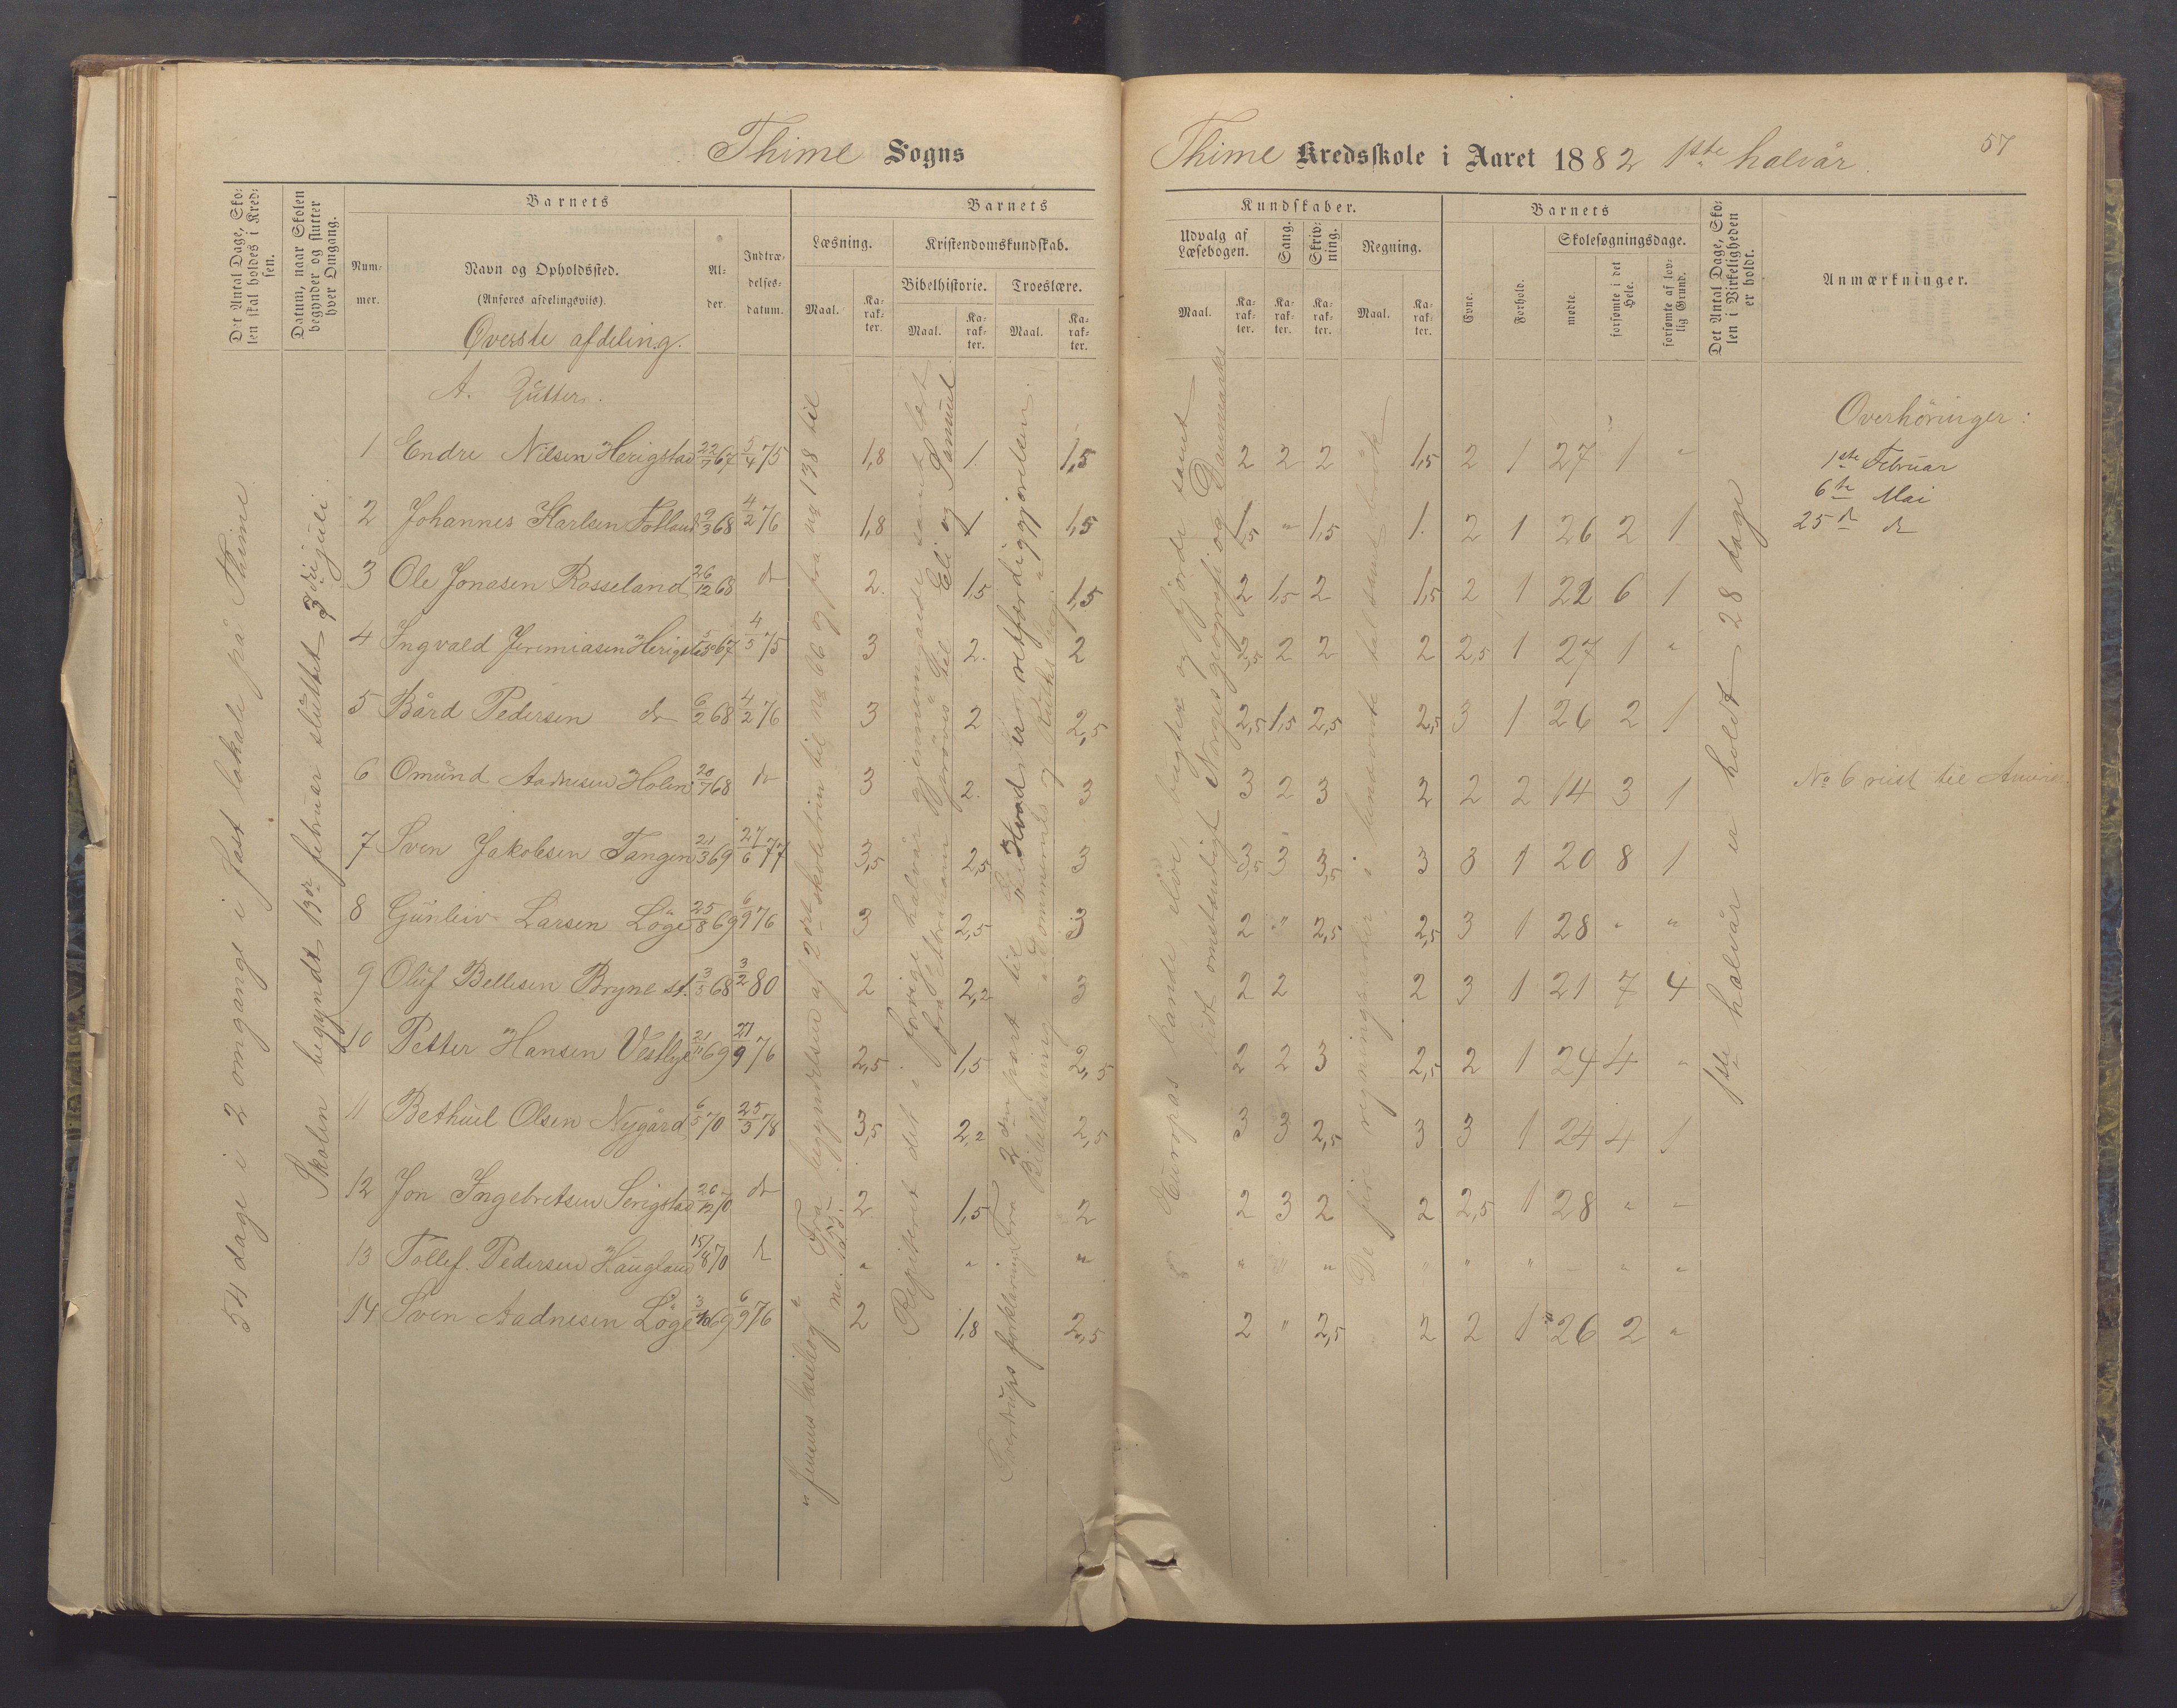 Thime Sogns
Det Antal Dage, Sko-
len skal holdes i Kred-
sen.
Datum, naar Skolen
begynder og slutter
hver Omgang.
Barnets
Num-
mer.
Navn og Opholdssted.
(Anføres afdelingsvis).
Al-
der.
Indtræ-
delses-
datum.
Barnets
Læsning.
Maal.
Ka-
rak-
ter.
Kristendomskundskab.
Bibelhistorie.
Maal.
Ka-
rak-
ter.
Troeslære.
Maal.
Ka-
rak-
ter.
Øverste afdeling.
A. Gutter.
54 dage i 2 omgange i fast lokale på Thime.
Skolen begyndt 13de februar sluttet 3die juli.
Fra begyndelsen af 2det skoletrin til no 66 og fra no 138 til
no. 155. i Jensens læsebog
Repiteret det i forrige halvår gjennemgaaede samt lært
fra Abraham til Eli og Samuel
Fra 2den part til Hvad er retfærdiggjørelsen.
Sverdrups forklaring.
1 Endre Nilsen Herigstad 22/7 67 5/4 75 1,8 1. 1,5
2 Johannes Karlsen Fotland 9/3 68 4/2 76 1,8 1 1,5
3 Ole Jonasen Rosseland 26/12 68 do 2. 1,5 1,5
4 Ingvald Jeremiasen Herigstad 67 4/5 75 3 2. 2
5 Bård Pedersen do 6/2 68 4/2 76 3 2 2,5
6 Omund Aadnesen Holen 20/7 68 do 3 2. 3
7 Sven Jakobsen Tangen 21/3 69 27/6 77 3,5 2,5 3
8 Gunleiv Larsen Løge 25/8 69 6/9 76 3 2,5 3
9 Oluf Bellesen Bryne st. 3/5 68 3/2 80 2 2,2 3
10 Petter Hansen Vestlye 21/11 69 27/9 76 2,5 1,5 2,5
11 Bethuel Olsen Nygård 6/5 70 25/3 78 3,5 2,2 2,5
12 Jon Ingebretsen Serigstad 26/12 70 do 2 1,5 2
13 Tollef Pedersen Haugland 15/8 70 do " " "
14 Sven Aadnesen Løge 3/10 69 6/9 76 2 1,8 2,5
Thime Kredsskole i Aaret 1882 1ste halvår.
57
Kundskaber.
Udvalg af
Læsebogen.
Maal.
Ka-
rak-
ter.
Sang.
Ka-
rak-
ter.
Skriv-
ning.
Ka-
rak-
ter.
Regning.
Maal.
Ka-
rak-
ter.
Barnets
Evne.
Forhold.
Skolesøgningsdage.
mødte.
forsømte i det
Hele.
forsømte af lov-
lig Grund.
Det Antal Dage, Sko-
len i Virkeligheden
er holdt.
Anmærkninger.
Europas lande, elve, bugter og fjorde samt
lidt omstændeligt Norges geografi og Danmarks
De fire regningsarter i hundsomte tal samt brøk
1ste halvår er holdt 28 dage
Overhøringer:
1ste Februar
6te Mai
25de do
2 2 2 1,5 2 1 27 1 "
1,5 " 1,5 1. 2 1 26 2 1
2 1,5 2 1,5 2 1 22 6 1
2,5 2 2 2 2,5 1 27 1 "
2,5 1,5 2,5 2,5 3 1 26 2 1
3 2 3 2 2 2 14 3 1 No 6 reist til
3,5 3 3,5 3 3 1 20 8 1
2 " 2,5 2,5 3 1 28 " "
2 2 2 3 1 21 7 4
2 2 3 2,5 2 1 24 4 "
3 3 2,5 3 3 1 24 4 1
2 3 2 2 2,5 1 28 " "
" " " " " " " " "
2 " 2,5 2 2 1 26 2 "